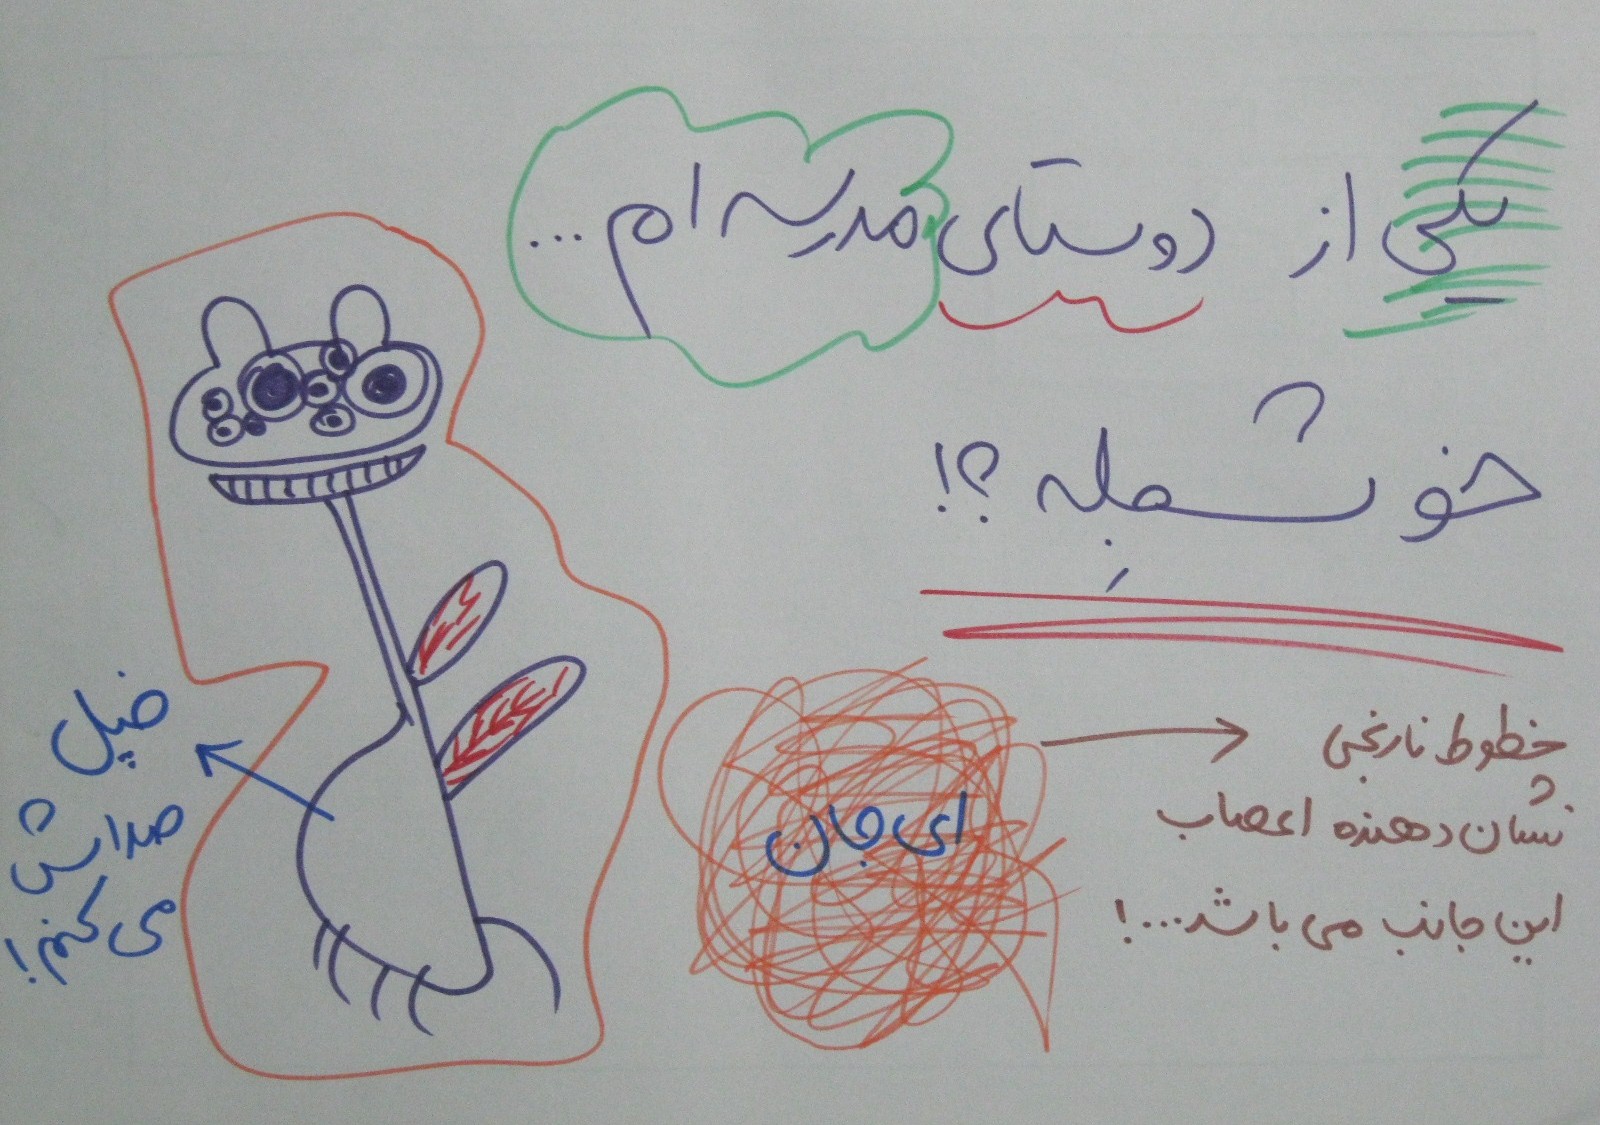 یکی از دوستای مدرسه ام...
خوشجله ؟!
خطوط نارنجی
نشان دهنده اعصاب
این جانب می باشد...!
ای جان
ضپل
صدایش
می کنم!